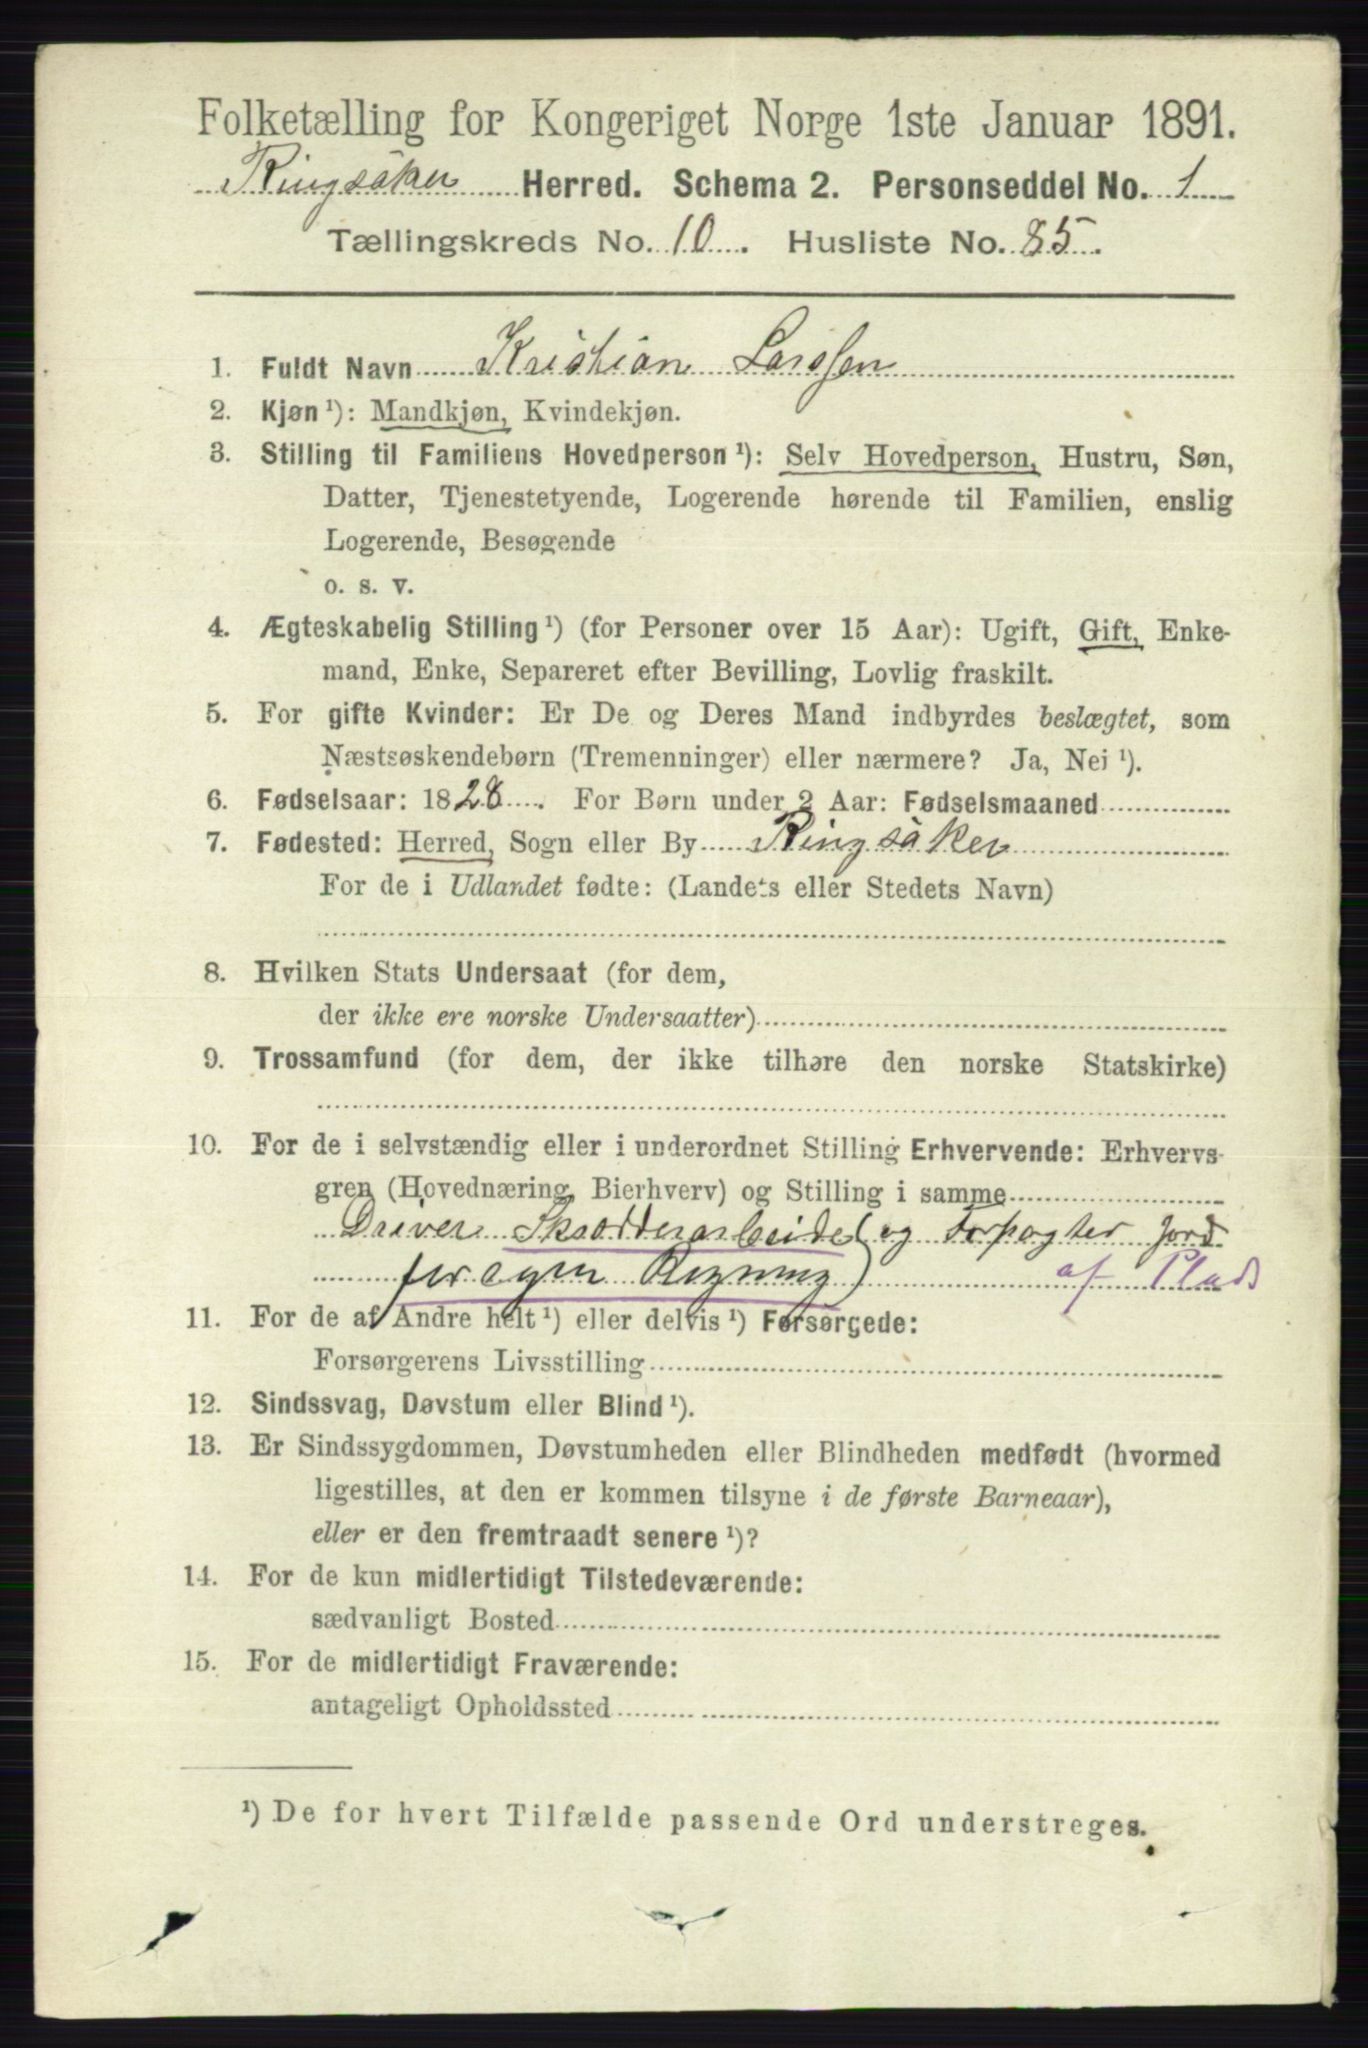 Folketælling for Kongeriget Norge 1ste Januar 1891.
Ringsaker Herred. Schema 2. Personseddel No. 1
Tællingskreds No. 10. Husliste No. 85.
1. Fuldt Navn Kristian Larssen
2. Kjøn ¹): Mandkjøn, Kvindekjøn.
3. Stilling til Familiens Hovedperson ¹): Selv Hovedperson, Hustru, Søn,
Datter, Tjenestetyende, Logerende hørende til Familien, enslig
Logerende, Besøgende
o. s. v.
4. Ægteskabelig Stilling ¹) (for Personer over 15 Aar): Ugift, Gift, Enke-
mand, Enke, Separeret efter Bevilling, Lovlig fraskilt.
5. For gifte Kvinder: Er De og Deres Mand indbyrdes beslægtet, som
Næstsøskendebørn (Tremenninger) eller nærmere? Ja, Nei ¹).
6. Fødselsaar: 1828. For Børn under 2 Aar: Fødselsmaaned
7. Fødested: Herred, Sogn eller By Ringsaker
For de i Udlandet fødte: (Landets eller Stedets Navn)
8. Hvilken Stats Undersaat (for dem,
der ikke ere norske Undersaatter)
9. Trossamfund (for dem, der ikke tilhøre den norske Statskirke)
10. For de i selvstændig eller i underordnet Stilling Erhvervende: Erhvervs-
gren (Hovednæring, Bierhverv) og Stilling i samme
Driver Skrædderarbeide (og Forpagter Jord
for egen Regning) af Plads
11. For de af Andre helt ¹) eller delvis ¹) Forsørgede:
Forsørgerens Livsstilling
12. Sindssvag, Døvstum eller Blind ¹).
13. Er Sindssygdommen, Døvstumheden eller Blindheden medfødt (hvormed
ligestilles, at den er kommen tilsyne i de første Barneaar),
eller er den fremtraadt senere ¹)?
14. For de kun midlertidigt Tilstedeværende:
sædvanligt Bosted
15. For de midlertidigt Fraværende:
antageligt Opholdssted
¹) De for hvert Tilfælde passende Ord understreges.